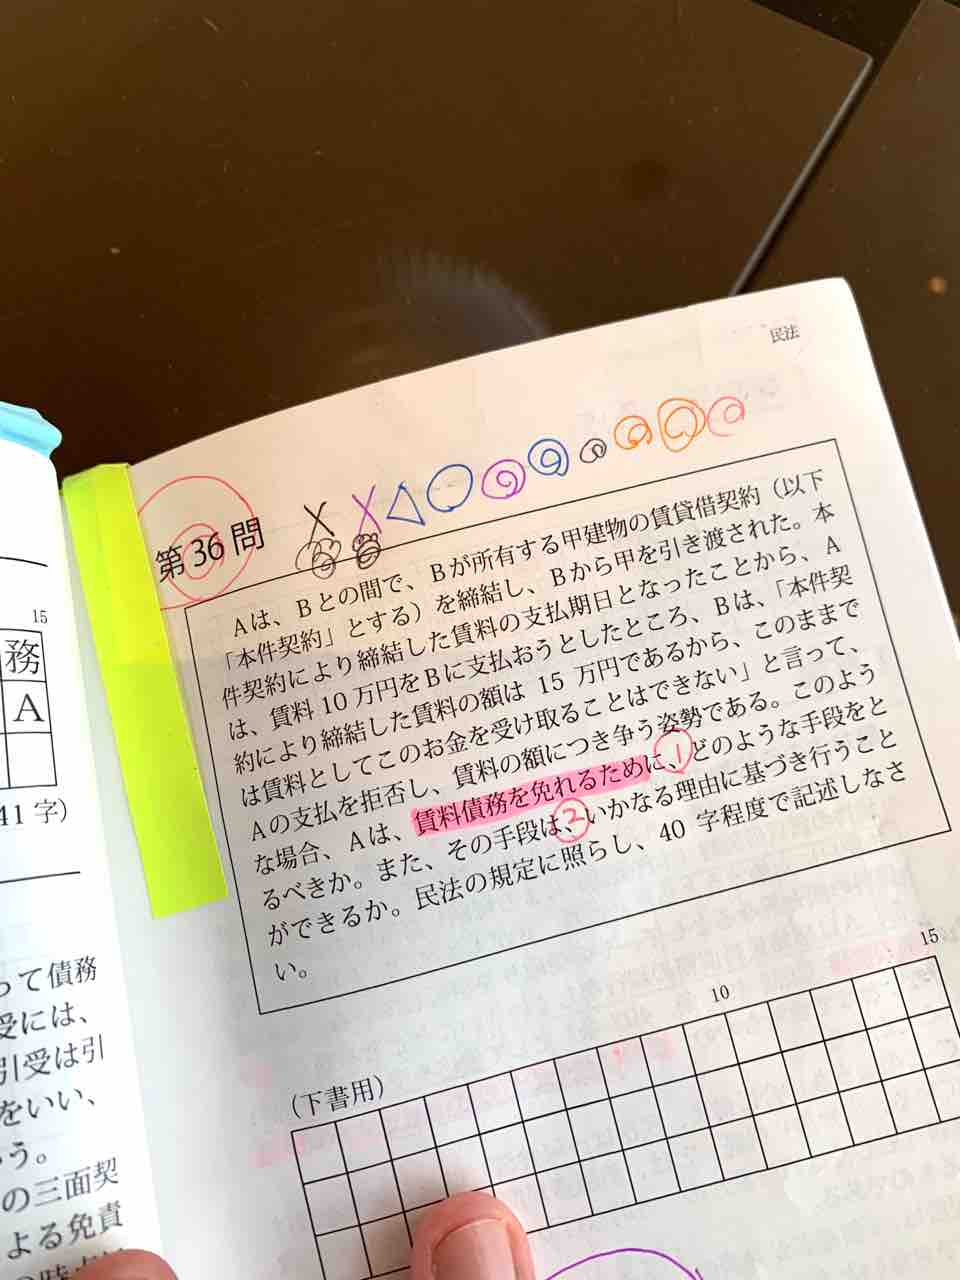 民法
第36問
Aは、Bとの間で、Bが所有する甲建物の賃貸借契約（以下
「本件契約」とする）を締結し、Bから甲を引き渡された。本
件契約により締結した賃料の支払期日となったことから、A
は、賃料10万円をBに支払おうとしたところ、Bは、「本件契
約により締結した賃料の額は15万円であるから、このままで
は賃料としてこのお金を受け取ることはできない」と言って、
Aの支払を拒否し、賃料の額につき争う姿勢である。このよう
な場合、Aは、賃料債務を免れるために、①どのような手段をと
るべきか。また、その手段は、②いかなる理由に基づき行うこと
ができるか。民法の規定に照らし、40字程度で記述しなさ
い。
10
15
（下書用）
15
務
A
41字）
って債務
受には、
引受は引
をいい、
う。
の三面契
よる免責